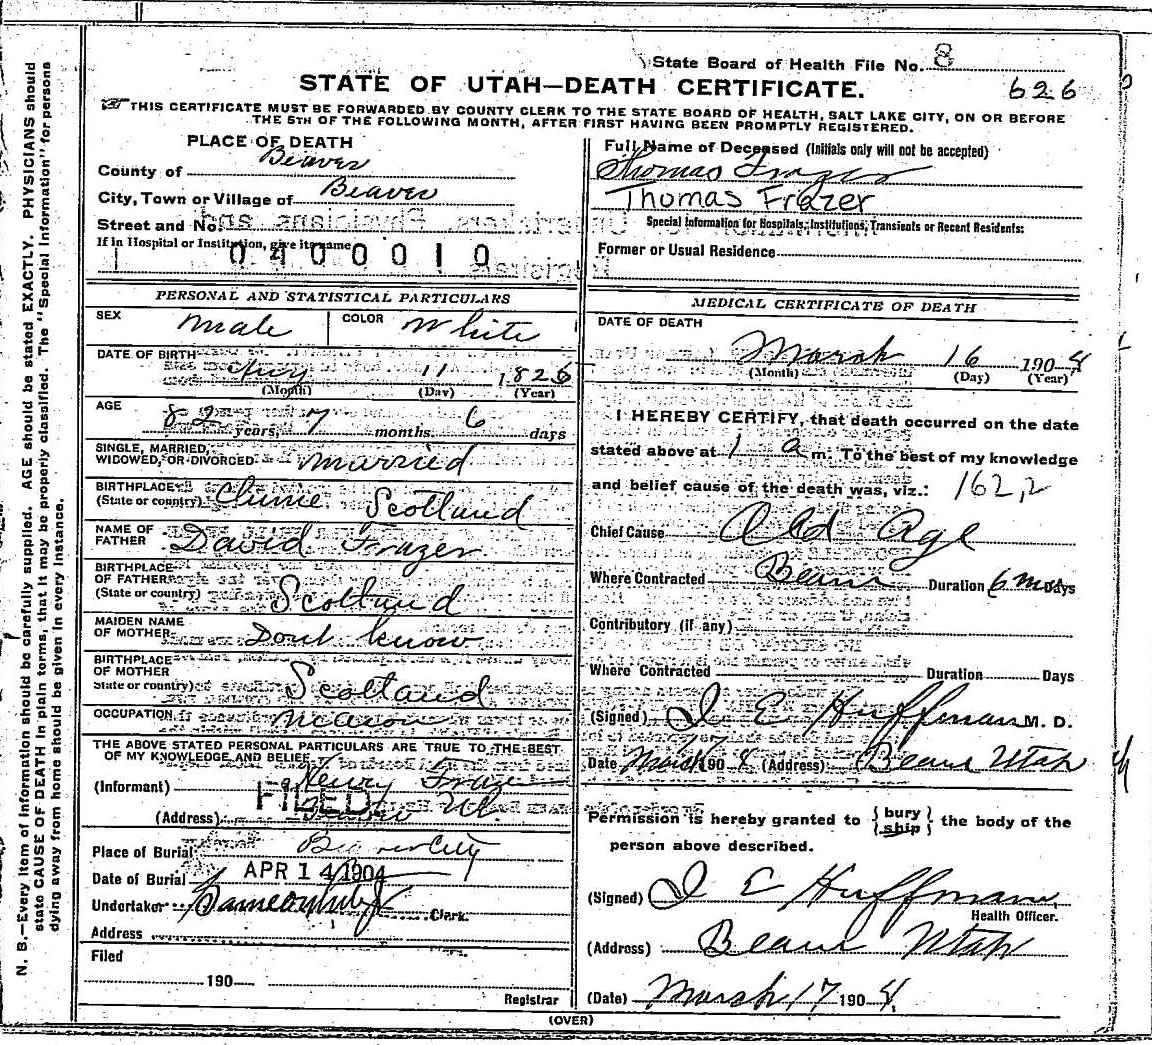 State Board of Health File No. 8
626
STATE OF UTAH—DEATH CERTIFICATE.
THIS CERTIFICATE MUST BE FORWARDED BY COUNTY CLERK TO THE STATE BOARD OF HEALTH, SALT LAKE CITY, ON OR BEFORE
THE 5TH OF THE FOLLOWING MONTH, AFTER FIRST HAVING BEEN PROMPTLY REGISTERED.
N. B.—Every item of information should be carefully supplied. AGE should be stated EXACTLY. PHYSICIANS should
state CAUSE OF DEATH in plain terms, that it may be properly classified. The "Special Information" for persons
dying away from home should be given in every instance.
PLACE OF DEATH
County of Beaver
City, Town or Village of Beaver
Street and No.
If in Hospital or Institution, give its name
0400010
PERSONAL AND STATISTICAL PARTICULARS
SEX Male COLOR White
DATE OF BIRTH 11 1826
(Month) (Day) (Year)
AGE
82 years, 7 months 6 days
SINGLE, MARRIED,
WIDOWED, OR DIVORCED married
BIRTHPLACE
(State or country) Scotland
NAME OF
FATHER David Frazer
BIRTHPLACE
OF FATHER
(State or country) Scotland
MAIDEN NAME
OF MOTHER Dont know
BIRTHPLACE
OF MOTHER
State or country) Scotland
OCCUPATION
THE ABOVE STATED PERSONAL PARTICULARS ARE TRUE TO THE BEST
OF MY KNOWLEDGE AND BELIEF
(Informant) Henry Frazer
FILED
(Address) Ut.
Place of Burial Beaver City
Date of Burial APR 14 1904
Undertaker Clerk.
Address
Filed
190
Registrar
Full Name of Deceased (Initials only will not be accepted)
Thomas Frazer
Thomas Frazer
Special Information for Hospitals, Institutions, Transients or Recent Residents:
Former or Usual Residence
MEDICAL CERTIFICATE OF DEATH
DATE OF DEATH
March 16 1904
(Month) (Day) (Year)
I HEREBY CERTIFY, that death occurred on the date
stated above at 1 a m. To the best of my knowledge
and belief cause of the death was, viz.: 162,2
Chief Cause Old Age
Where Contracted Beaver Duration 6 mos Days
Contributory (if any)
Where Contracted Duration Days
(Signed) J E Huffman M. D.
Date March 17 1904 (Address) Beaver Utah
Permission is hereby granted to { bury ship } the body of the
person above described.
(Signed) J E Huffman
Health Officer.
(Address) Beaver Utah
(Date) March 17 1904.
(OVER)